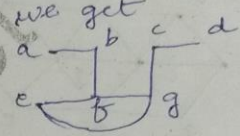 we get
a b c d
e f g